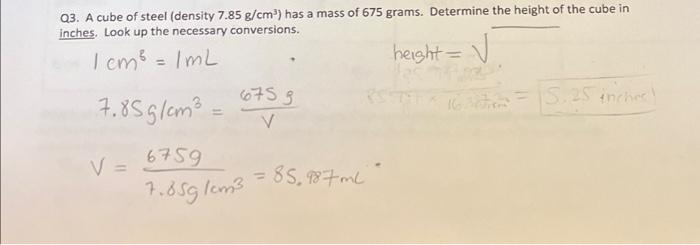 Q3. A cube of steel (density 7.85 g/cm³) has a mass of 675 grams. Determine the height of the cube in
inches. Look up the necessary conversions.
1 cm³ = 1mL
height = √
7.85g/cm³ = 675 g / V
= 5.25 inches
V = 675g / 7.85g/cm³ = 85.987mL